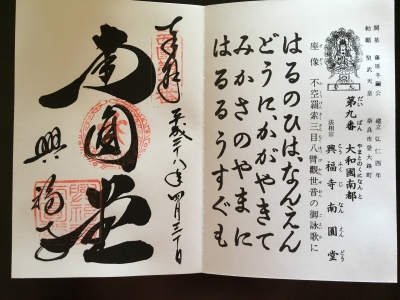 開基 藤原冬嗣公 建立 弘仁四年
勅願 聖武天皇 奈良市登大路町
第九番 大和國南都
法相宗 興福寺南圓堂
座像 不空羂索三目八臂觀世音の御詠歌に
はるのひは、なんえん
どうに、かがやきて
みかさのやまに
はるるうすぐも
奉拝 平成二十八年四月三十日
南圓堂
興福寺